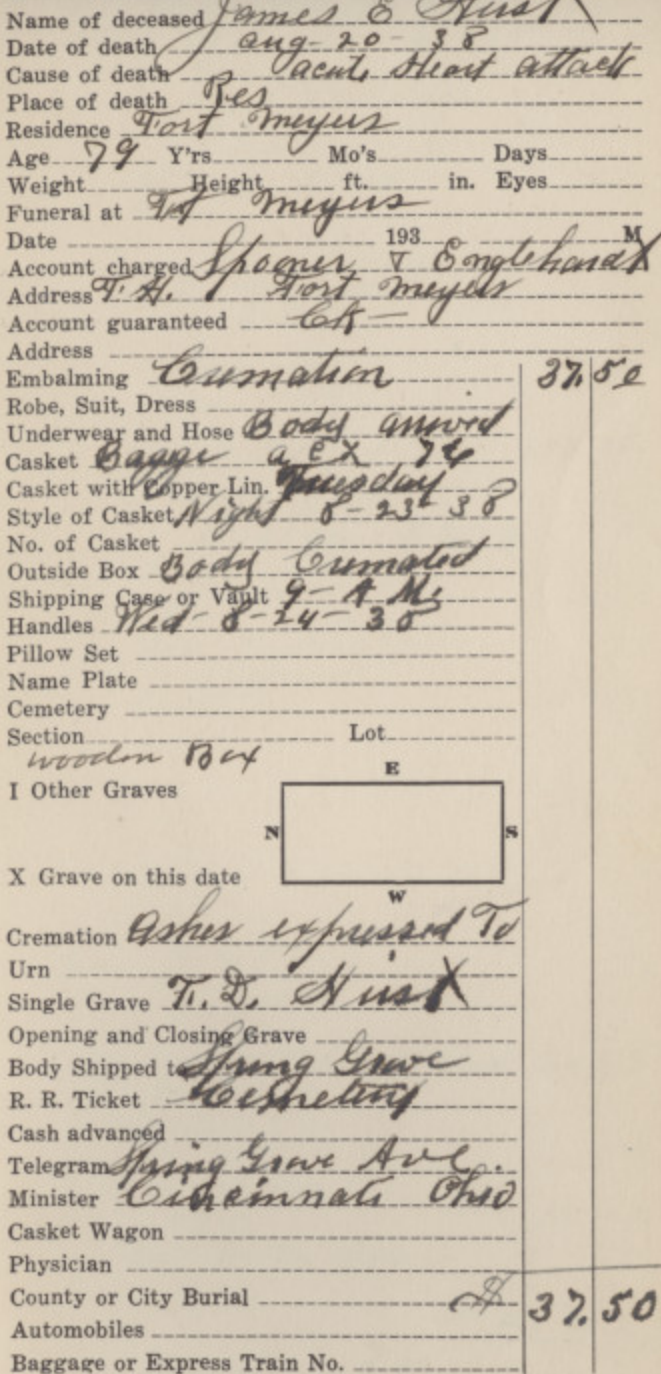 Name of deceased James E Hust
Date of death aug-20-38
Cause of death acute Heart attack
Place of death Res
Residence Fort Meyers
Age 79 Y'rs Mo's Days
Weight Height ft. in. Eyes
Funeral at Ft Meyers
Date 193 M
Account charged Spooner & Englehardt
Address F.H. Fort Meyers
Account guaranteed Ck
Address
Embalming Cremation 37.50
Robe, Suit, Dress
Underwear and Hose Body arrived
Casket Bagge a EX 76
Casket with Copper Lin. Tuesday
Style of Casket Night 8-23-38
No. of Casket
Outside Box Body Cremated
Shipping Case or Vault 9-A M.
Handles Wed-8-24-38
Pillow Set
Name Plate
Cemetery
Section Lot
wooden Box
E
I Other Graves
N S
X Grave on this date
W
Cremation Ashes expressed To
Urn
Single Grave T.D. Hust
Opening and Closing Grave
Body Shipped to Spring Grove
R. R. Ticket Cemetery
Cash advanced
Telegram Spring Grove Ave.
Minister Cincinnati Ohio
Casket Wagon
Physician
County or City Burial 37.50
Automobiles
Baggage or Express Train No.